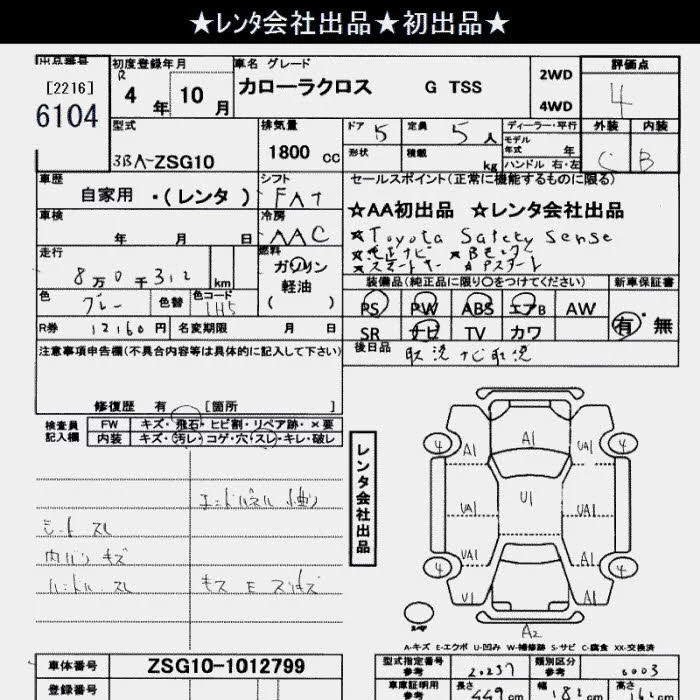 ★レンタ会社出品★初出品★
出品番号
[2216]
6104
初度登録年月
R 4 年 10 月
車名 グレード
カローラクロス G TSS
2WD
4WD
評価点
4
外装 内装
C B
型式
3BA-ZSG10
排気量
1800 cc
ドア 5
定員 5 人
形状
積載 kg
ディーラー・平行
モデル年式 年
ハンドル 右・左
車歴
自家用 ・(レンタ )
シフト
FAT
冷房
AAC
車検
年 月 日
走行
8万0千312 km
燃料
ガソリン
軽油
( )
色
グレー
色替
色コード
1H5
R券 12160 円
名変期限 月 日
セールスポイント(正常に機能するものに限る)
☆AA初出品 ☆レンタ会社出品
★Toyota Safety Sense
★純正ナビ ★Bモニター
★スマートキー ★Pスタート
装備品(純正品に限り○をつけてください)
PS PW ABS エアB AW
SR ナビ TV カワ
新車保証書
有・無
後日品
取説 ナビ取説
注意事項申告欄(不具合内容等は具体的に記入して下さい)
修復歴 有 [箇所 ]
検査員記入欄
FW キズ・飛石・ヒビ割・リペア跡・×要
内装 キズ・汚レ・コゲ・穴・スレ・キレ・破レ
シート スレ
内バリ キズ
ハンドル スレ
エンドパネル 小曲り
キズ E スリキズ
レンタ会社出品
A1
4 A1 UA1 4
UA1 U1 UA1
4 UA1 UA1 4
U1 U1
A2
A-キズ E-エクボ U-凹み W-補修跡 S-サビ C-腐食 XX-交換済
車体番号 ZSG10-1012799
登録番号
型式指定番号 参考 20237
類別区分 参考 0003
車庫証明用 参考
長さ 449 cm
幅 182 cm
高さ 162 cm